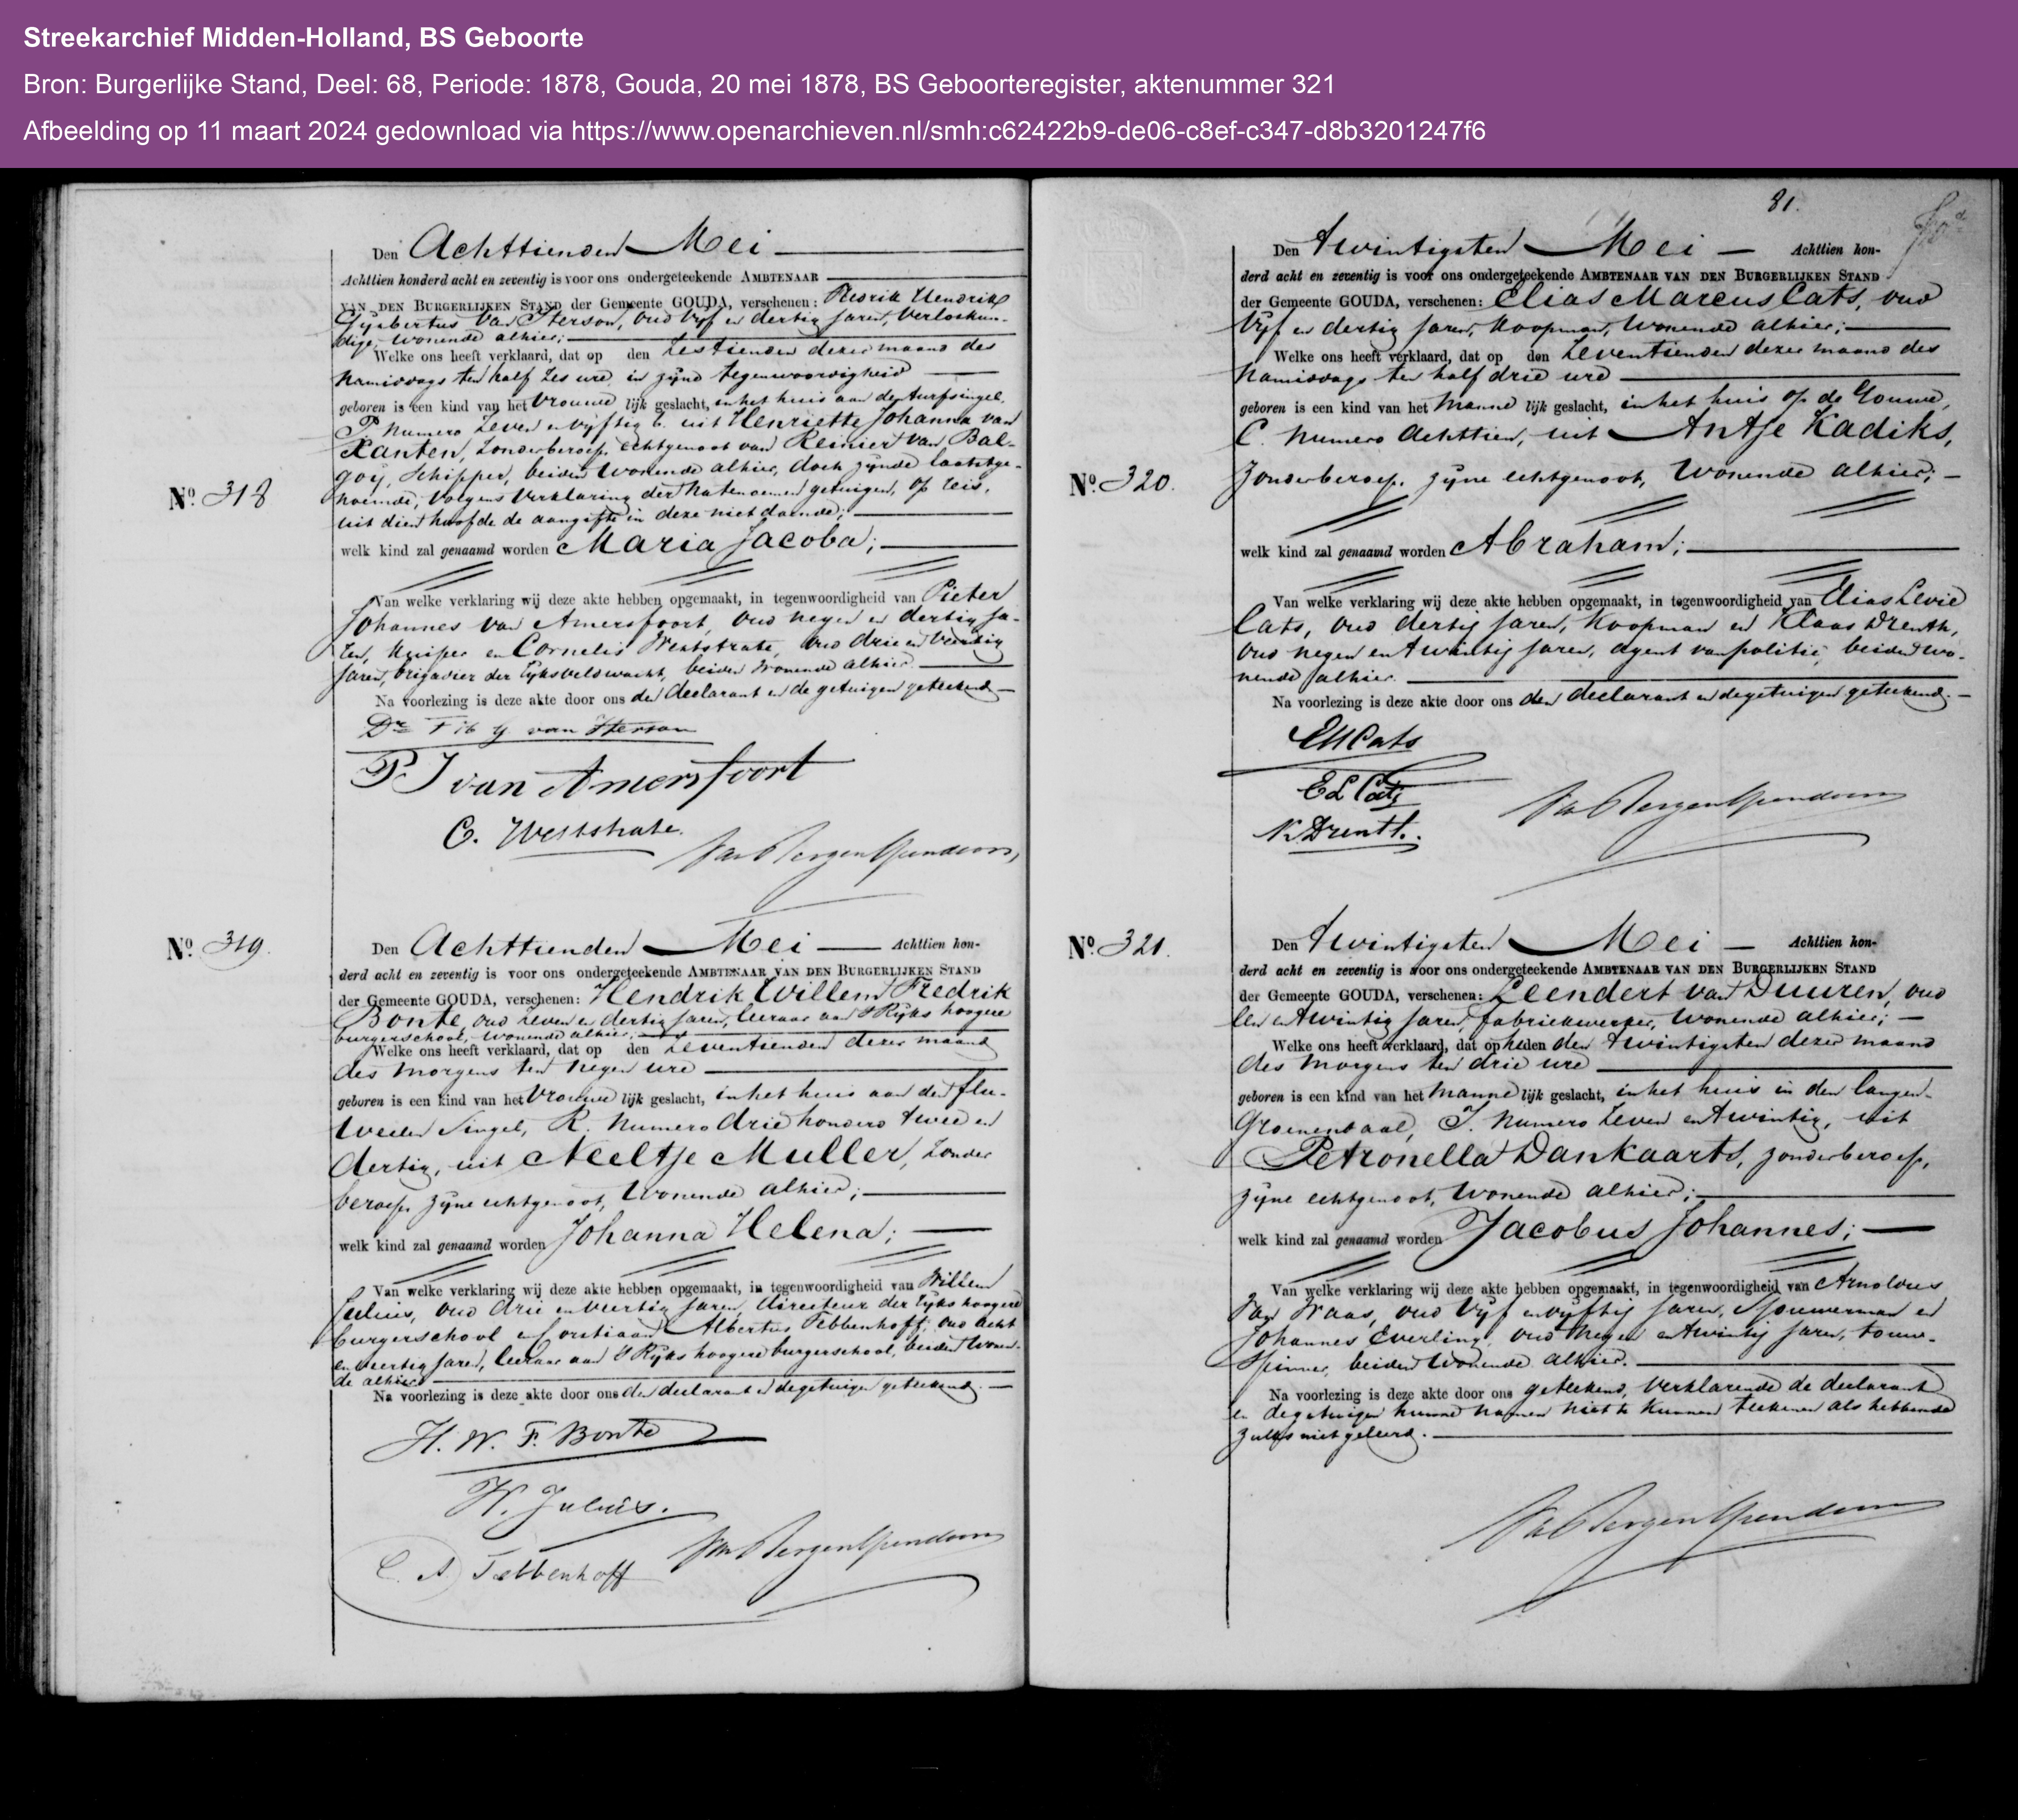 Streekarchief Midden-Holland, BS Geboorte
Bron: Burgerlijke Stand, Deel: 68, Periode: 1878, Gouda, 20 mei 1878, BS Geboorteregister, aktenummer 321
Afbeelding op 11 maart 2024 gedownload via https://www.openarchieven.nl/smh:c62422b9-de06-c8ef-c347-d8b3201247f6
No. 318
Den Achttienden Mei
Achttien honderd acht en zeventig is voor ons ondergeteekende AMBTENAAR
VAN DEN BURGERLIJKEN STAND der Gemeente GOUDA, verschenen: Fredrik Hendrik
Gijsbertus van Iterson, oud vijf en dertig jaren, verloskun-
dige, wonende alhier;
Welke ons heeft verklaard, dat op den zestienden dezer maand des
namiddags ten half zes ure in zijne tegenwoordigheid
geboren is een kind van het vrouwe lijk geslacht, in het huis aan de turfsingel,
P numero zeven en vijftig b. uit Henriette Johanna van
Xanten, zonder beroep, echtgenoot van Reinier van Bal-
goij, schipper, beiden wonende alhier, doch zijnde laatstge-
noemde, volgens verklaring der natenoemen getuigen, op reis,
uit dien hoofde de aangifte in deze niet doende;
welk kind zal genaamd worden Maria Jacoba;
Van welke verklaring wij deze akte hebben opgemaakt, in tegenwoordigheid van Pieter
Johannes van Amersfoort, oud negen en dertig ja-
ren, kuiper en Cornelis Weststrate, oud drie en veertig
jaren, brigadier der rijksveldwacht, beiden wonende alhier.
Na voorlezing is deze akte door ons den declarant en de getuigen geteekend
Dr F H G van Iterson
P J van Amersfoort
C. Weststrate.
Van Bergen IJzendoorn
No. 319.
Den Achttienden Mei Achttien hon-
derd acht en zeventig is voor ons ondergeteekende AMBTENAAR VAN DEN BURGERLIJKEN STAND
der Gemeente GOUDA, verschenen: Hendrik Willem Fredrik
Bonte, oud zeven en dertig jaren, leeraar aan 's Rijks hoogere
burgerschool, wonende alhier;
Welke ons heeft verklaard, dat op den zeventienden dezer maand
des morgens ten negen ure
geboren is een kind van het vrouwe lijk geslacht, in het huis aan den flu-
weelen Singel, R. numero drie honderd twee en
dertig, uit Neeltje Muller, zonder
beroep, zijne echtgenoot, wonende alhier;
welk kind zal genaamd worden Johanna Helena;
Van welke verklaring wij deze akte hebben opgemaakt, in tegenwoordigheid van Willem
Julius, oud drie en veertig jaren, directeur der rijks hoogere
burgerschool en Corstiaan Albertus Tebbenhoff, oud acht
en veertig jaren, leeraar aan 's Rijks hoogere burgerschool, beiden wonen-
de alhier
Na voorlezing is deze akte door ons den declarant en de getuigen geteekend.
H. W. F. Bonte
W. Julius.
C. A. Tebbenhoff
Van Bergen IJzendoorn
81.
No. 320.
Den Twintigsten Mei Achttien hon-
derd acht en zeventig is voor ons ondergeteekende AMBTENAAR VAN DEN BURGERLIJKEN STAND
der Gemeente GOUDA, verschenen: Elias Marcus Cats, oud
vijf en dertig jaren, koopman, wonende alhier;
Welke ons heeft verklaard, dat op den zeventienden dezer maand des
namiddags ten half drie ure
geboren is een kind van het manne lijk geslacht, in het huis op de Gouwe,
C. numero achttien, uit Antje Kadiks,
zonder beroep, zijne echtgenoot, wonende alhier;
welk kind zal genaamd worden Abraham;
Van welke verklaring wij deze akte hebben opgemaakt, in tegenwoordigheid van Elias Levie
Cats, oud dertig jaren, koopman en Klaas Drenth,
oud negen en twintig jaren, agent van politie, beiden wo-
nende alhier.
Na voorlezing is deze akte door ons den declarant en de getuigen geteekend.
EMCats
E L Cats
K Drenth.
Van Bergen IJzendoorn
No. 321.
Den Twintigsten Mei Achttien hon-
derd acht en zeventig is voor ons ondergeteekende AMBTENAAR VAN DEN BURGERLIJKEN STAND
der Gemeente GOUDA, verschenen: Leendert van Duuren, oud
een en twintig jaren, fabriekwerker, wonende alhier;
Welke ons heeft verklaard, dat op heden den twintigsten dezer maand
des morgens ten drie ure
geboren is een kind van het manne lijk geslacht, in het huis in den langen
Groenendaal, I. numero zeven en twintig, uit
Petronella Dankaarts, zonder beroep,
zijne echtgenoot, wonende alhier;
welk kind zal genaamd worden Jacobus Johannes;
Van welke verklaring wij deze akte hebben opgemaakt, in tegenwoordigheid van Arnoldus
van Waas, oud vijf en vijftig jaren, sjouwerman en
Johannes Everling, oud negen en twintig jaren, touw-
spinner, beiden wonende alhier.
Na voorlezing is deze akte door ons geteekend, verklarende de declarant
en de getuigen hunne namen niet te kunnen teekenen als hebbende
zulks niet geleerd.
Van Bergen IJzendoorn